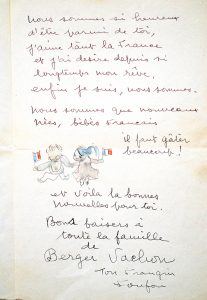 nous sommes si heureux
d'être parmi de toi,
j'aime tant la France
et j'ai désiré depuis si
longtemps mon rêve,
enfin je suis, nous sommes.
nous sommes que nouveaux
nées, bébés français
il faut gâter
beaucoup!
et voilà la bonnes
nouvelles pour toi.
Bons baisers à
toute la famille
de
Berger Vachon
Ton frangin